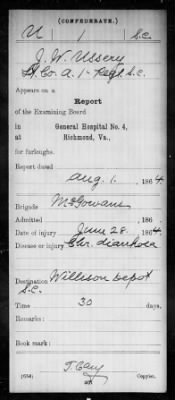 (CONFEDERATE.)
U 1 S.C.
J. W. Ussery
Co. A. 1 Regt S.C.
Appears on a
Report
of the Examining Board
in General Hospital No. 4,
at Richmond, Va.,
for furloughs.
Report dated
Aug. 1. 1864.
Brigade McGowans
Admitted , 186 .
Date of injury June 28. 1864.
Disease or injury Chr. diarrhoea
Destination Willison Depot
S.C.
Time 30 days.
Remarks:
Book mark:
T. Cary
Copyist.